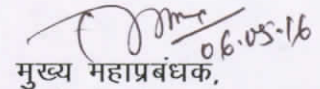 06.05-16
मुख्य महाप्रबंधक,